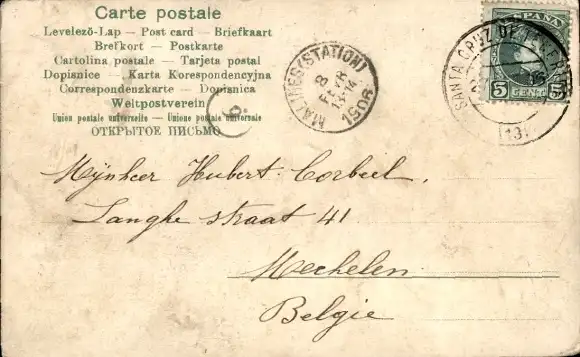 Carte postale
Levelező-Lap — Post card — Briefkaart
Brefkort — Postkarte
Cartolina postale — Tarjeta postal
Dopisnice — Karta Korespondencyjna
Correspondenzkarte — Dopisnica
Weltpostverein
Union postale universelle — Unione postale universale
ОТКРЫТОЕ ПИСЬМО
6
MALINES (STATION)
8
FEVR
13-14
1906
ESPAÑA
5 CENT 5
SANTA CRUZ DE TENERIFE
(13)
Mijnheer Hubert Corbeel,
Langhe straat 41
Mechelen
Belgie